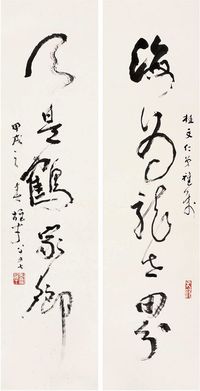 海為龍世界
桂文仁弟雅屬
天是鶴家鄉
甲戌之春